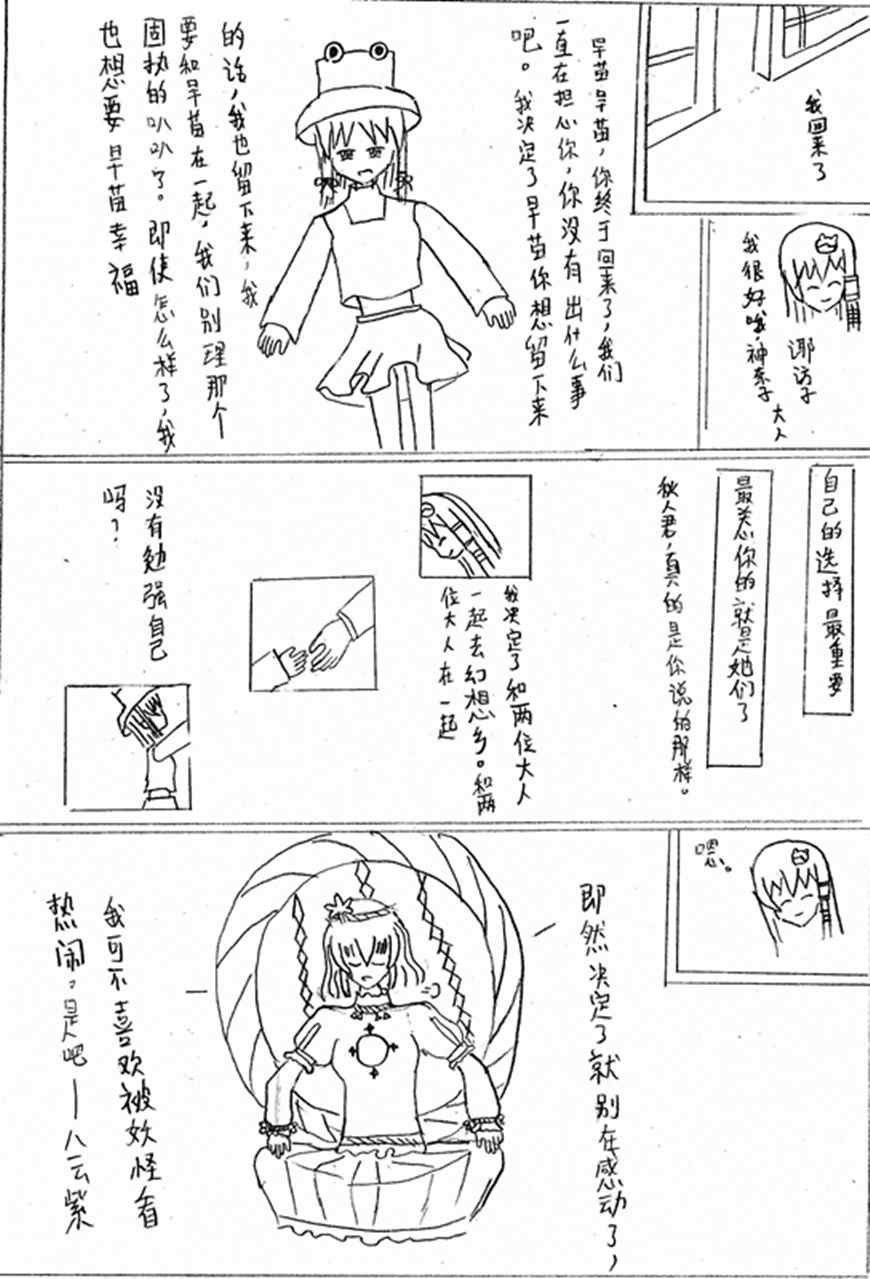 我回来了
我很好哦，神奈子
诹访子
大人
早苗早苗，你终于回来了，我们
一直在担心你，你没有出什么事
吧。我决定了早苗你想留下来
的话，我也留下来，我
要和早苗在一起，我们别理那个
固执的叭叭了。即使怎么样了，我
也想要早苗幸福
自己的选择最重要
最关心你的就是她们了
秋人君，真的是你说的那样。
我决定了和两位大人
一起去幻想乡。和两
位大人在一起
没有勉强自己
吗？
嗯。
即然决定了就别在感动了，
我可不喜欢被妖怪看
热闹。是吧一八云紫